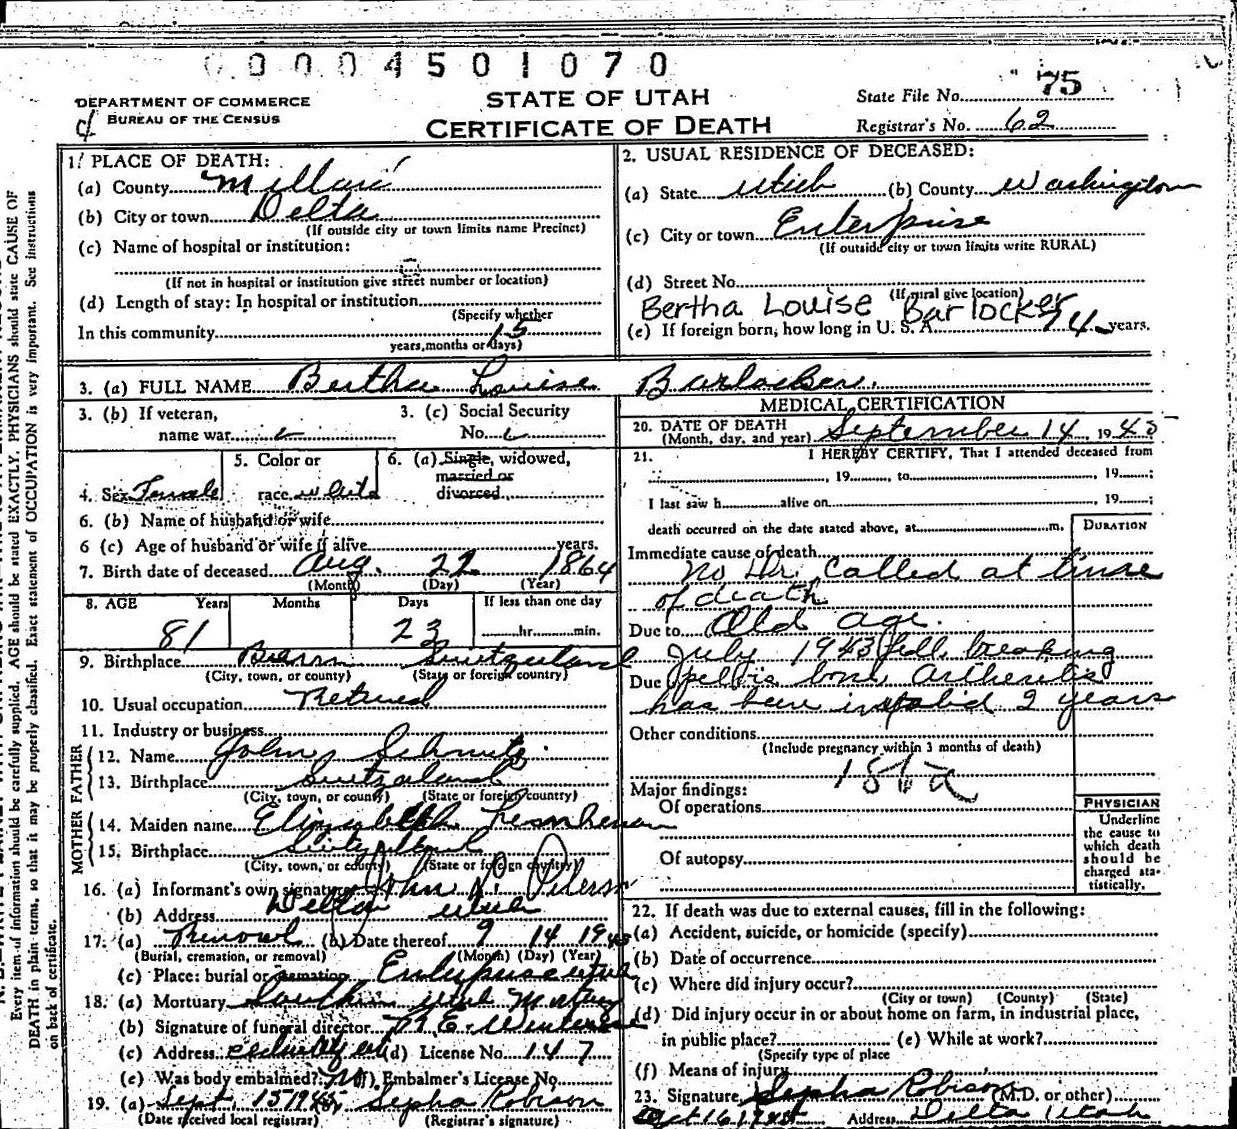 0004501070
DEPARTMENT OF COMMERCE
BUREAU OF THE CENSUS
STATE OF UTAH
CERTIFICATE OF DEATH
State File No. 75
Registrar's No. 62
1. PLACE OF DEATH:
(a) County Millard
(b) City or town Delta
(If outside city or town limits name Precinct)
(c) Name of hospital or institution:
(If not in hospital or institution give street number or location)
(d) Length of stay: In hospital or institution
(Specify whether
In this community 15
years, months or days)
2. USUAL RESIDENCE OF DECEASED:
(a) State Utah (b) County Washington
(c) City or town Enterprise
(If outside city or town limits write RURAL)
(d) Street No.
(If rural give location)
Bertha Louise Barlocker
(e) If foreign born, how long in U. S. A. 74 years.
3. (a) FULL NAME Bertha Louise Barlocker.
3. (b) If veteran,
name war
3. (c) Social Security
No.
4. Sex Female
5. Color or
race White
6. (a) Single, widowed,
married or
divorced
6. (b) Name of husband or wife
6 (c) Age of husband or wife if alive years.
7. Birth date of deceased Aug. 22 1864
(Month) (Day) (Year)
8. AGE Years Months Days If less than one day
81 23 hr. min.
9. Birthplace Switzerland
(City, town, or county) (State or foreign country)
10. Usual occupation Retired
11. Industry or business
FATHER
12. Name John
13. Birthplace Switzerland
(City, town, or county) (State or foreign country)
MOTHER
14. Maiden name Elizabeth
15. Birthplace Switzerland
(City, town, or county) (State or foreign country)
16. (a) Informant's own signature John
(b) Address Delta Utah
17. (a) Removal (b) Date thereof 9 14 1945
(Burial, cremation, or removal) (Month) (Day) (Year)
(c) Place: burial or cremation Enterprise Utah
18. (a) Mortuary Southern Utah Mortuary
(b) Signature of funeral director
(c) Address (d) License No. 147
(e) Was body embalmed? No (f) Embalmer's License No.
19. (a) Sept. 15 1945 Sepha Robison
(Date received local registrar) (Registrar's signature)
MEDICAL CERTIFICATION
20. DATE OF DEATH
(Month, day, and year) September 14, 1945
21. I HEREBY CERTIFY, That I attended deceased from
, 19 , to , 19 ;
I last saw h alive on 19 ;
death occurred on the date stated above, at m.
DURATION
Immediate cause of death
No Dr. called at time
of death
Due to Old age.
July 1943 fell breaking
Due pelvis bone Arthritis
has been invalid 2 years
Other conditions
(Include pregnancy within 3 months of death)
Major findings:
Of operations
Of autopsy
PHYSICIAN
Underline
the cause to
which death
should be
charged sta-
tistically.
22. If death was due to external causes, fill in the following:
(a) Accident, suicide, or homicide (specify)
(b) Date of occurrence
(c) Where did injury occur?
(City or town) (County) (State)
(d) Did injury occur in or about home on farm, in industrial place,
in public place? (e) While at work?
(Specify type of place
(f) Means of injury
23. Signature Sepha Robison (M.D. or other)
Oct 16 1945 Address Delta Utah
Every item of information should be carefully supplied. AGE should be stated EXACTLY. PHYSICIANS should state CAUSE OF
DEATH in plain terms, so that it may be properly classified. Exact statement of OCCUPATION is very important. See instructions
on back of certificate.